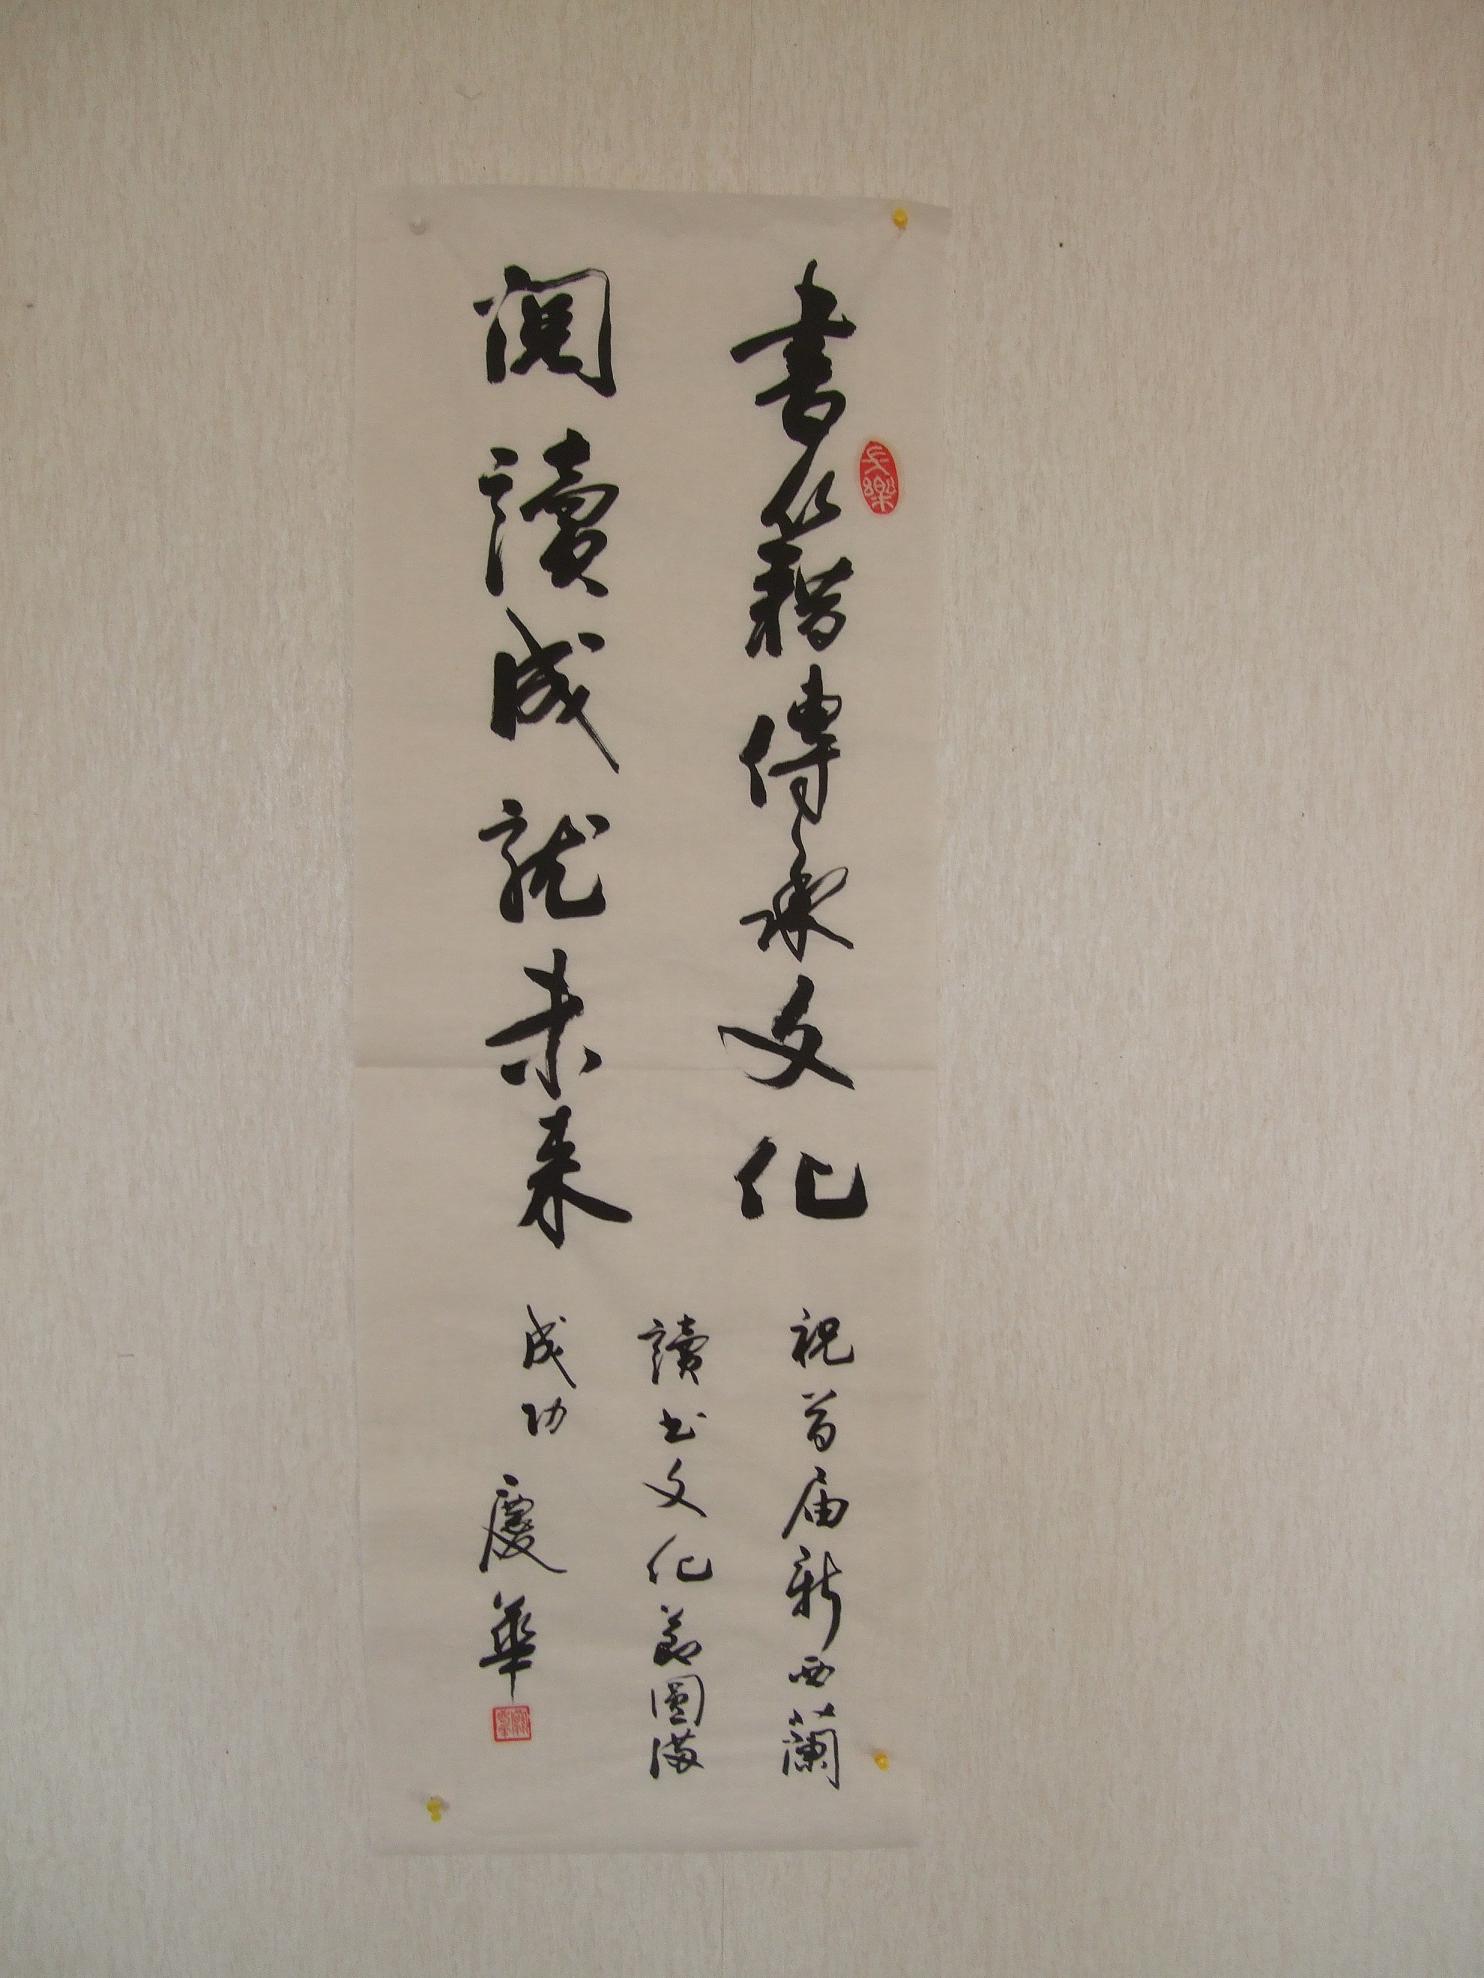 書籍傳承文化
閱讀成就未来
祝首届新西蘭
讀书文化節圓满
成功 慶華